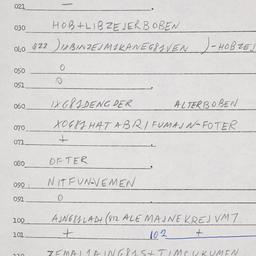 021
030 HOB+LIBZEJERBOBEN
040 022 )IXBINZEJMIKANEG81VEN )-HOBZEJ
050 0
051 0
060 IXG81DENGDER ALTERBOBEN
070 XOG81HATABRIFUMAJN-FOTER
071 +
080 OFTER
090 NITFUNVEMEN
091 0
100 AJNG81LADN(72 ALEMAJNEKREJVM7
101 + 102 +